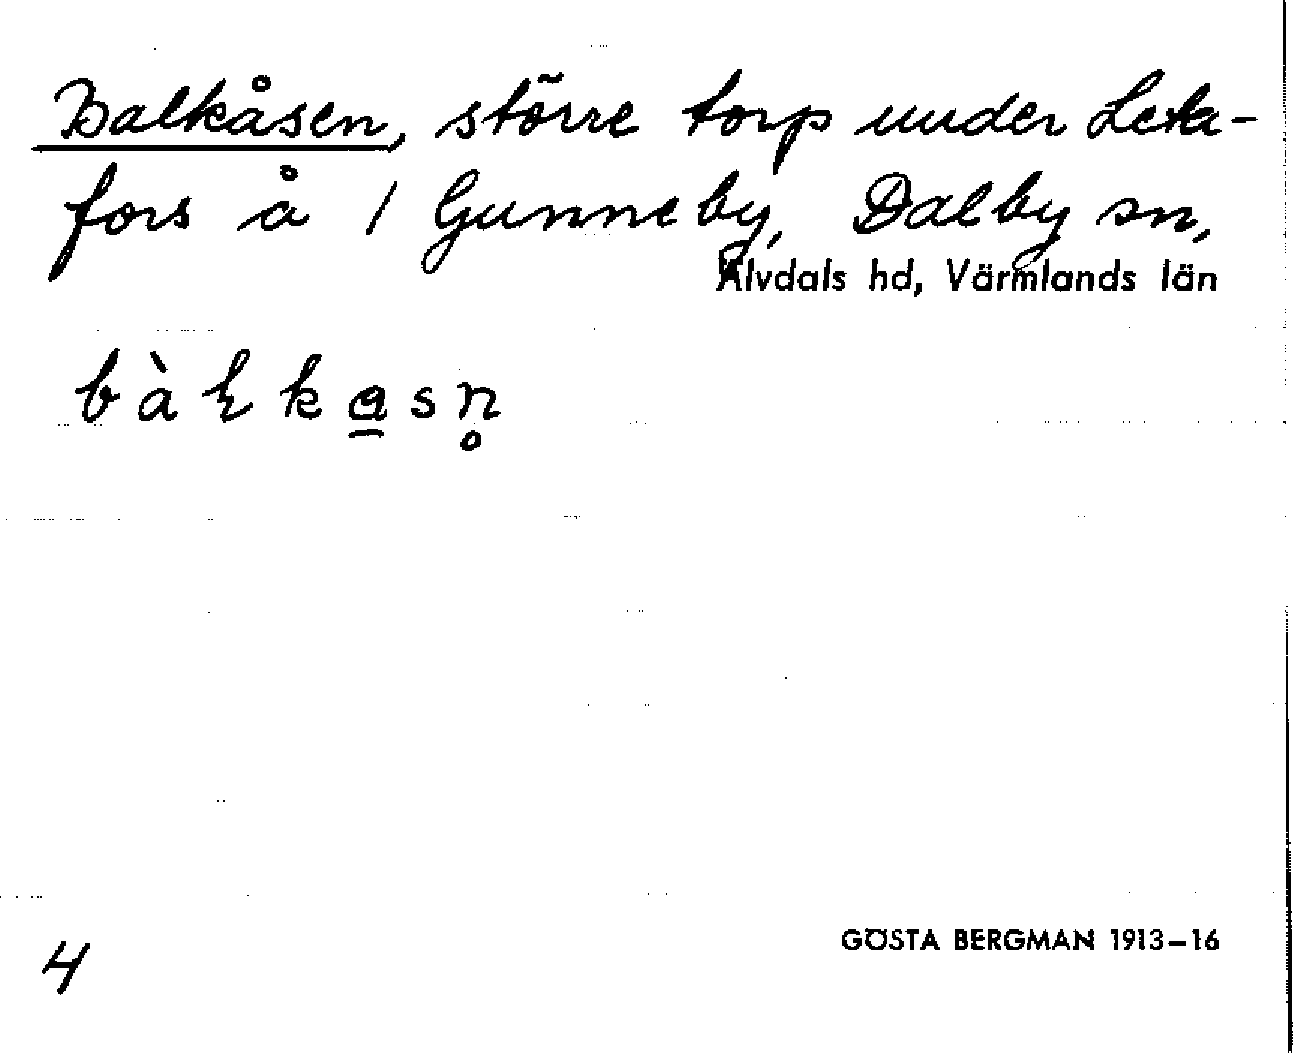 Balkåsen, större torp under Leta-
fors å 1 Gunneby, Dalby sn,
Älvdals hd, Värmlands län
bàɫkasn̥
4
GÖSTA BERGMAN 1913–16